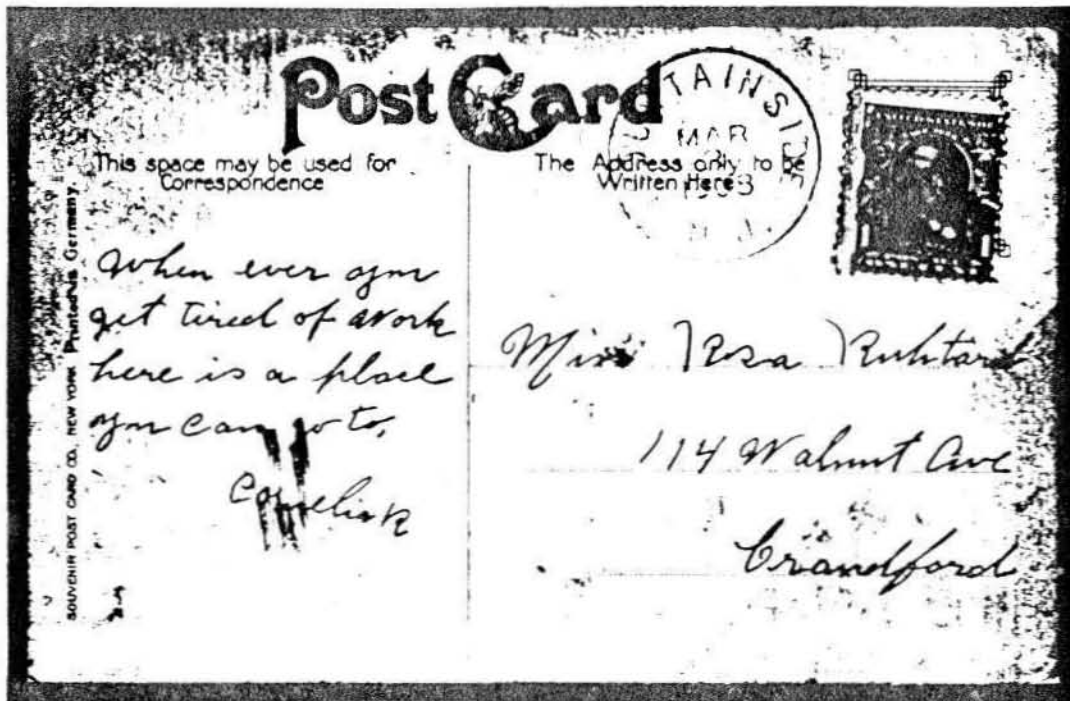 Post Card
This space may be used for
Correspondence
The Address only to be
Written Here
MAR
1908
N.J.
SOUVENIR POST CARD CO., NEW YORK Printed in Germany.
When ever you
get tired of work
here is a place
you can go to,
Miss Rosa
114 Walnut Ave
Crandford